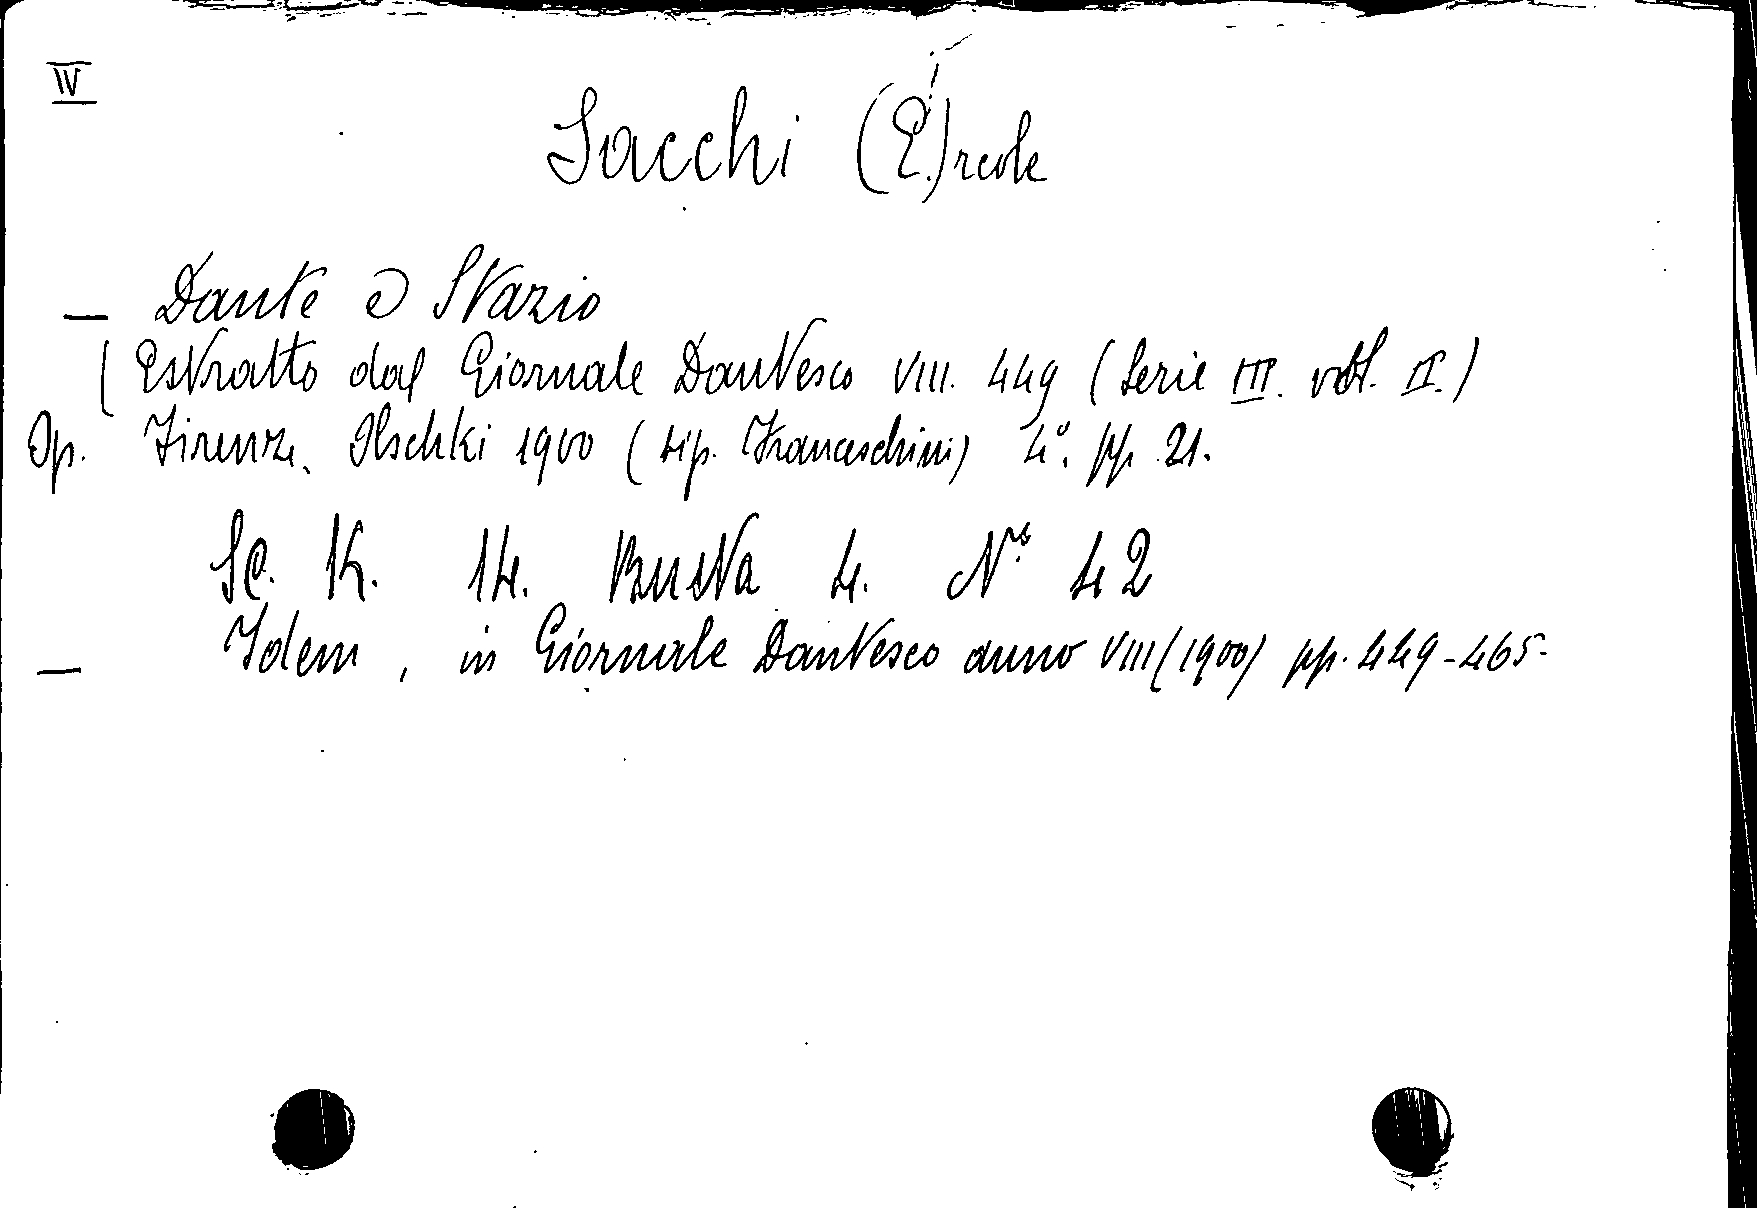 IV
Sacchi (E.)rcole
— Dante e Stazio
(Estratto dal Giornale Dantesco VIII. 449 (Serie III. vol. II.)
Op. Firenze, Olschki 1900 (tip. Franceschini) 4°. pp. 21.
Sc. K. 14. Busta 4. N.° 42
— Idem, in Giornale Dantesco anno VIII (1900) pp. 449-465-